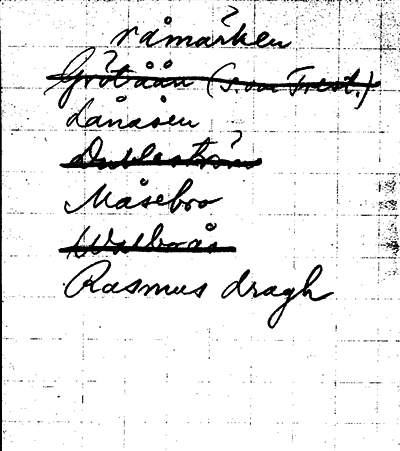 råmärken
Grötåån (s. om Trest.)
Lånåsen
Måsebro
Rasmus dragh